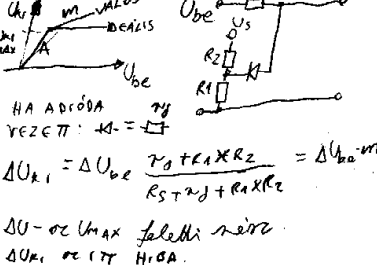 m VALÓS
IDEÁLIS
A
Ube
Ube
Us
R2
R1
HA A DIÓDA
VEZET: = rd
ΔUki = ΔUbe (rd + R1 × R2) / (RS + rd + R1 × R2) = ΔUbe · m
ΔU - az Umax feletti rész.
ΔUki az itt HIBA.